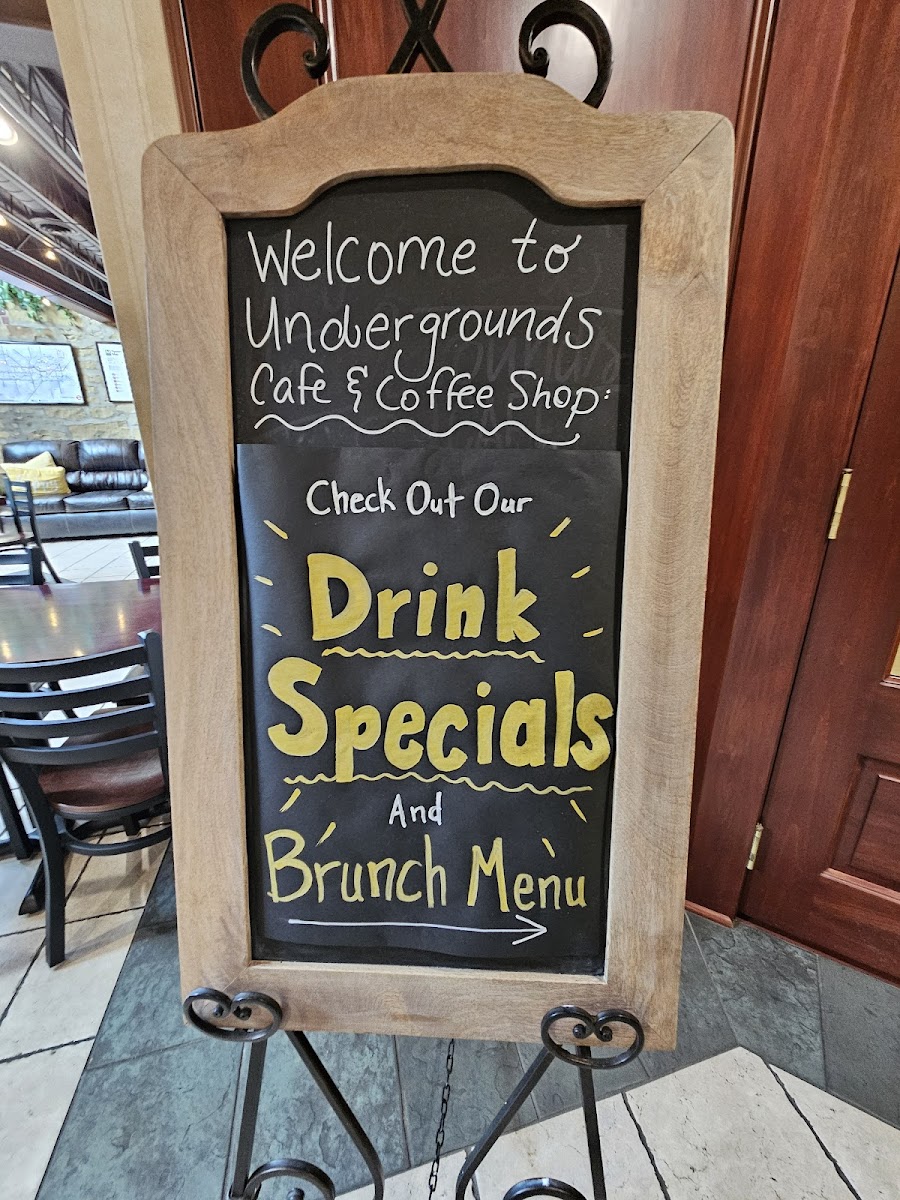 Welcome to
Undergrounds
Cafe & Coffee Shop:
Check Out Our
Drink
Specials
And
Brunch Menu